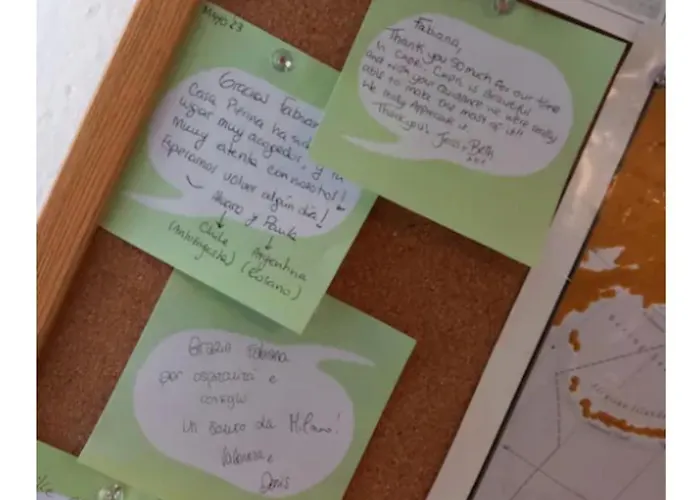 MAYO 23
Gracias Fabian
Casa Pierina ha sido
lugar muy acogedor, y tu
Muy atenta con nosotros!
Esperamos volver algún día!
Alvaro y Paula
Chile Argentina
(Antofagasta) (Rosario)
Fabiana,
Thank you SO much for our time
in Capri. Capri is Beautiful
and with your guidance we were really
able to make the most of it!!
We really Appreciate it.
Thankyou! Jess + Beth
xxx
Grazie Fabiana
per ospitalità e
consigli
un saluto da Milano!
Valeria e
Denis